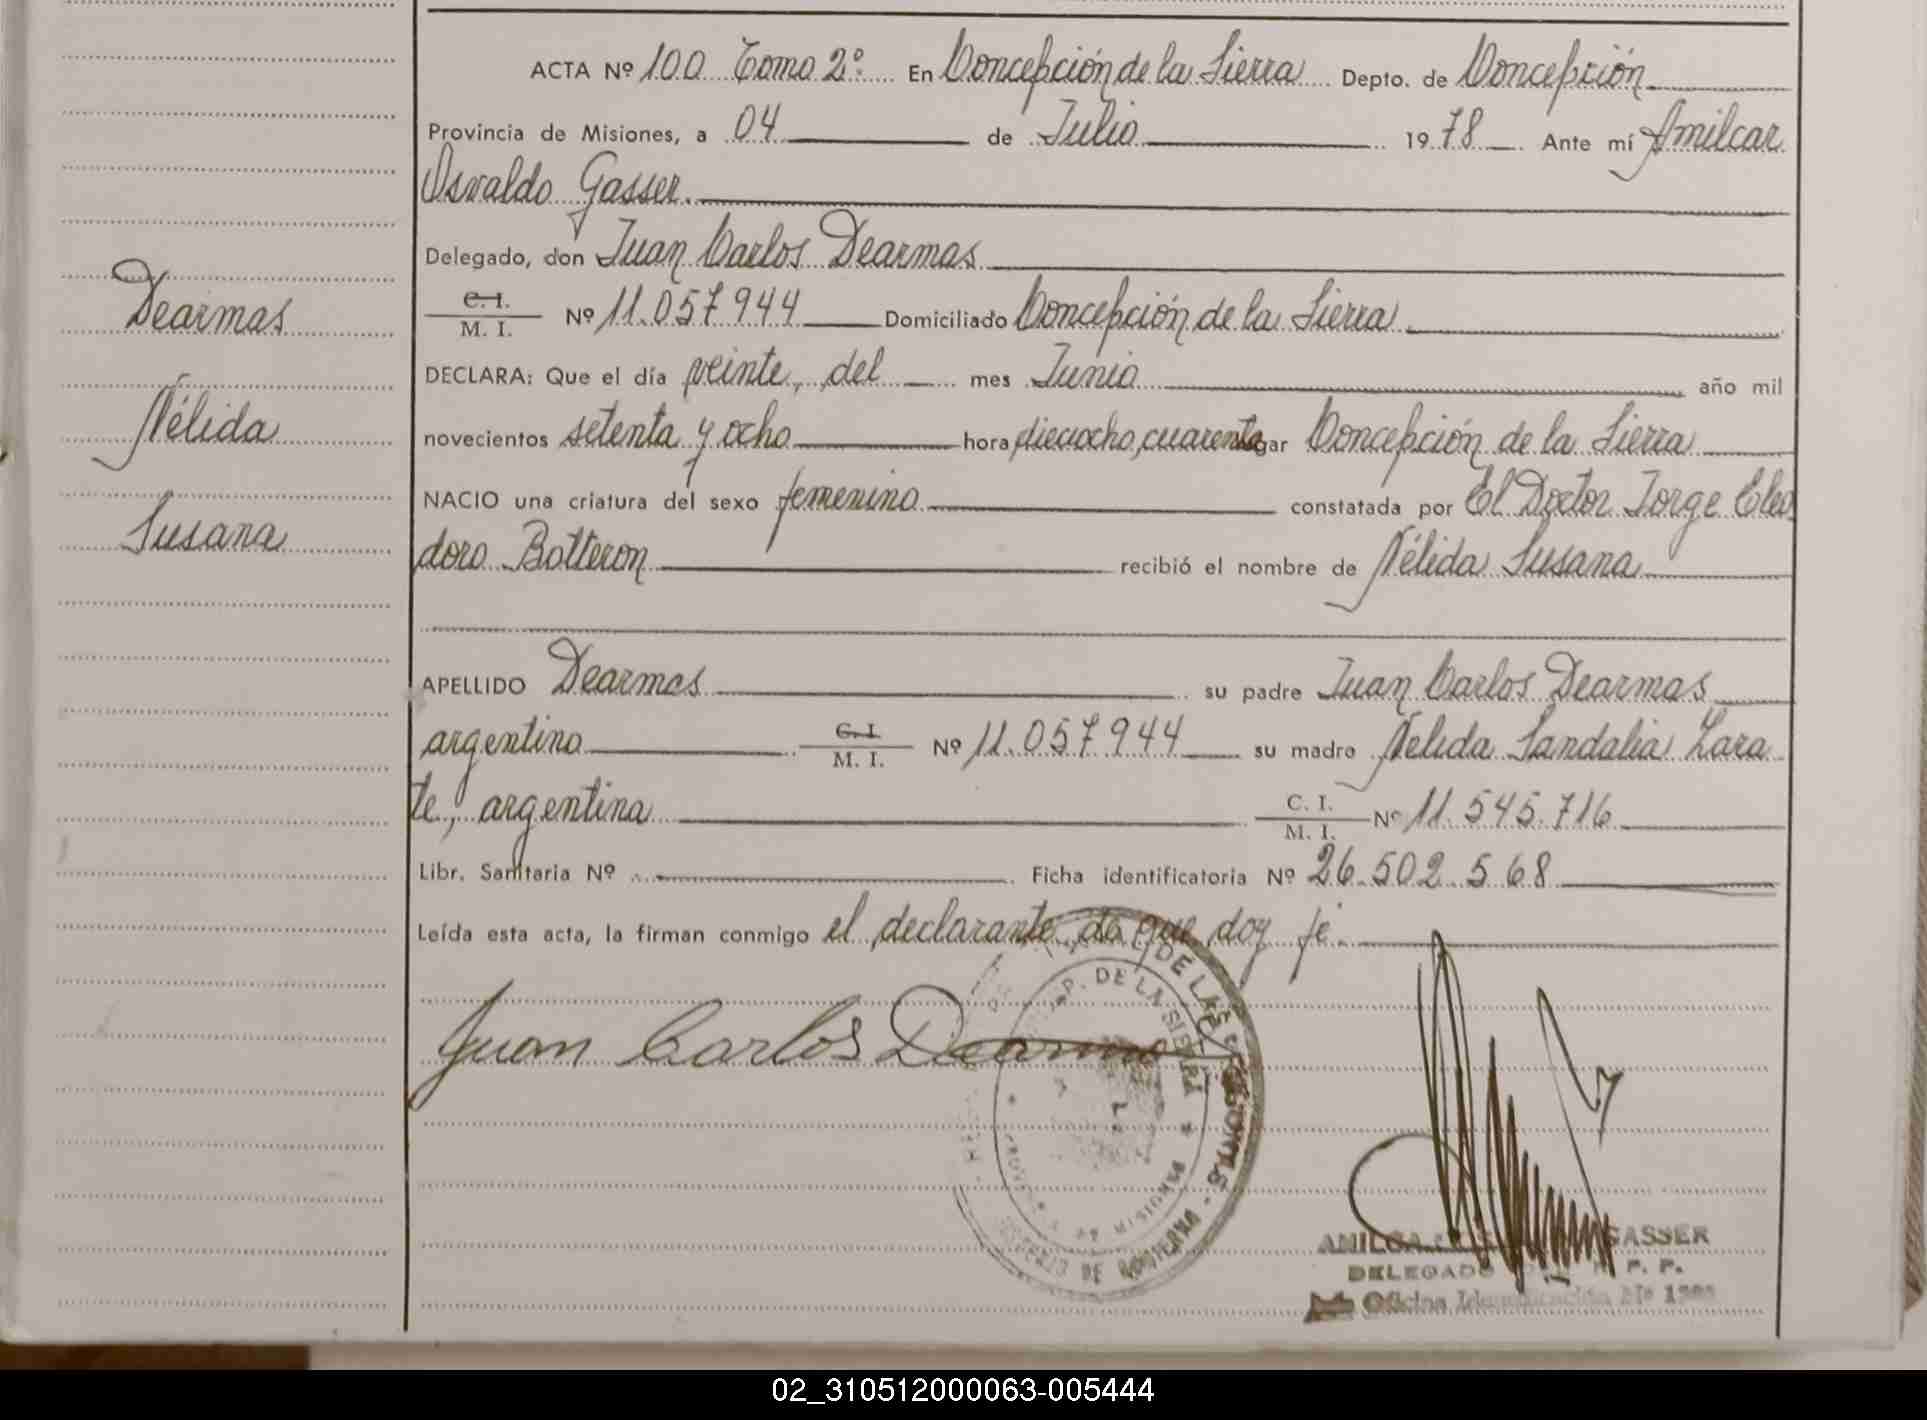 ACTA Nº 100 Tomo 2º. En Concepción de la Sierra Depto. de Concepción
Provincia de Misiones, a 04 de Julio 1978 Ante mí Amilcar
Osvaldo Gasser.
Delegado, don Juan Carlos Dearmas
C. I.
M. I. Nº 11.057.944 Domiciliado Concepción de la Sierra
Dearmas
DECLARA: Que el día veinte, del mes Junio año mil
novecientos setenta y ocho hora dieciocho, cuarenta gar Concepción de la Sierra
Nélida
NACIO una criatura del sexo femenino constatada por El Doctor Jorge Eleo
Susana
doro Botteron recibió el nombre de Nélida Susana
APELLIDO Dearmas su padre Juan Carlos Dearmas
argentino C. I. M. I. Nº 11.057.944 su madre Nelida Sandalia Zara
te, argentina C. I. M. I. Nº 11.545.716
Libr. Sanitaria Nº Ficha identificatoria Nº 26.502.568
Leída esta acta, la firman conmigo el declarante de que doy fé.
Juan Carlos Dearmas
DE LAS PERSONAS
P. DE LA SIERRA
DE MISIONES
DE GOBIERNO
GASSER
DELEGADO R. P. P.
Oficina Identificación Nº
02_310512000063-005444